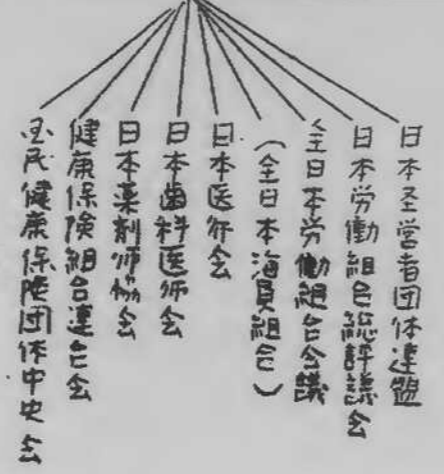 日本経営者団体連盟
日本労働組合総評議会
全日本労働組合会議
(全日本海員組合)
日本医師会
日本歯科医師会
日本薬剤師協会
健康保険組合連合会
国民健康保険団体中央会